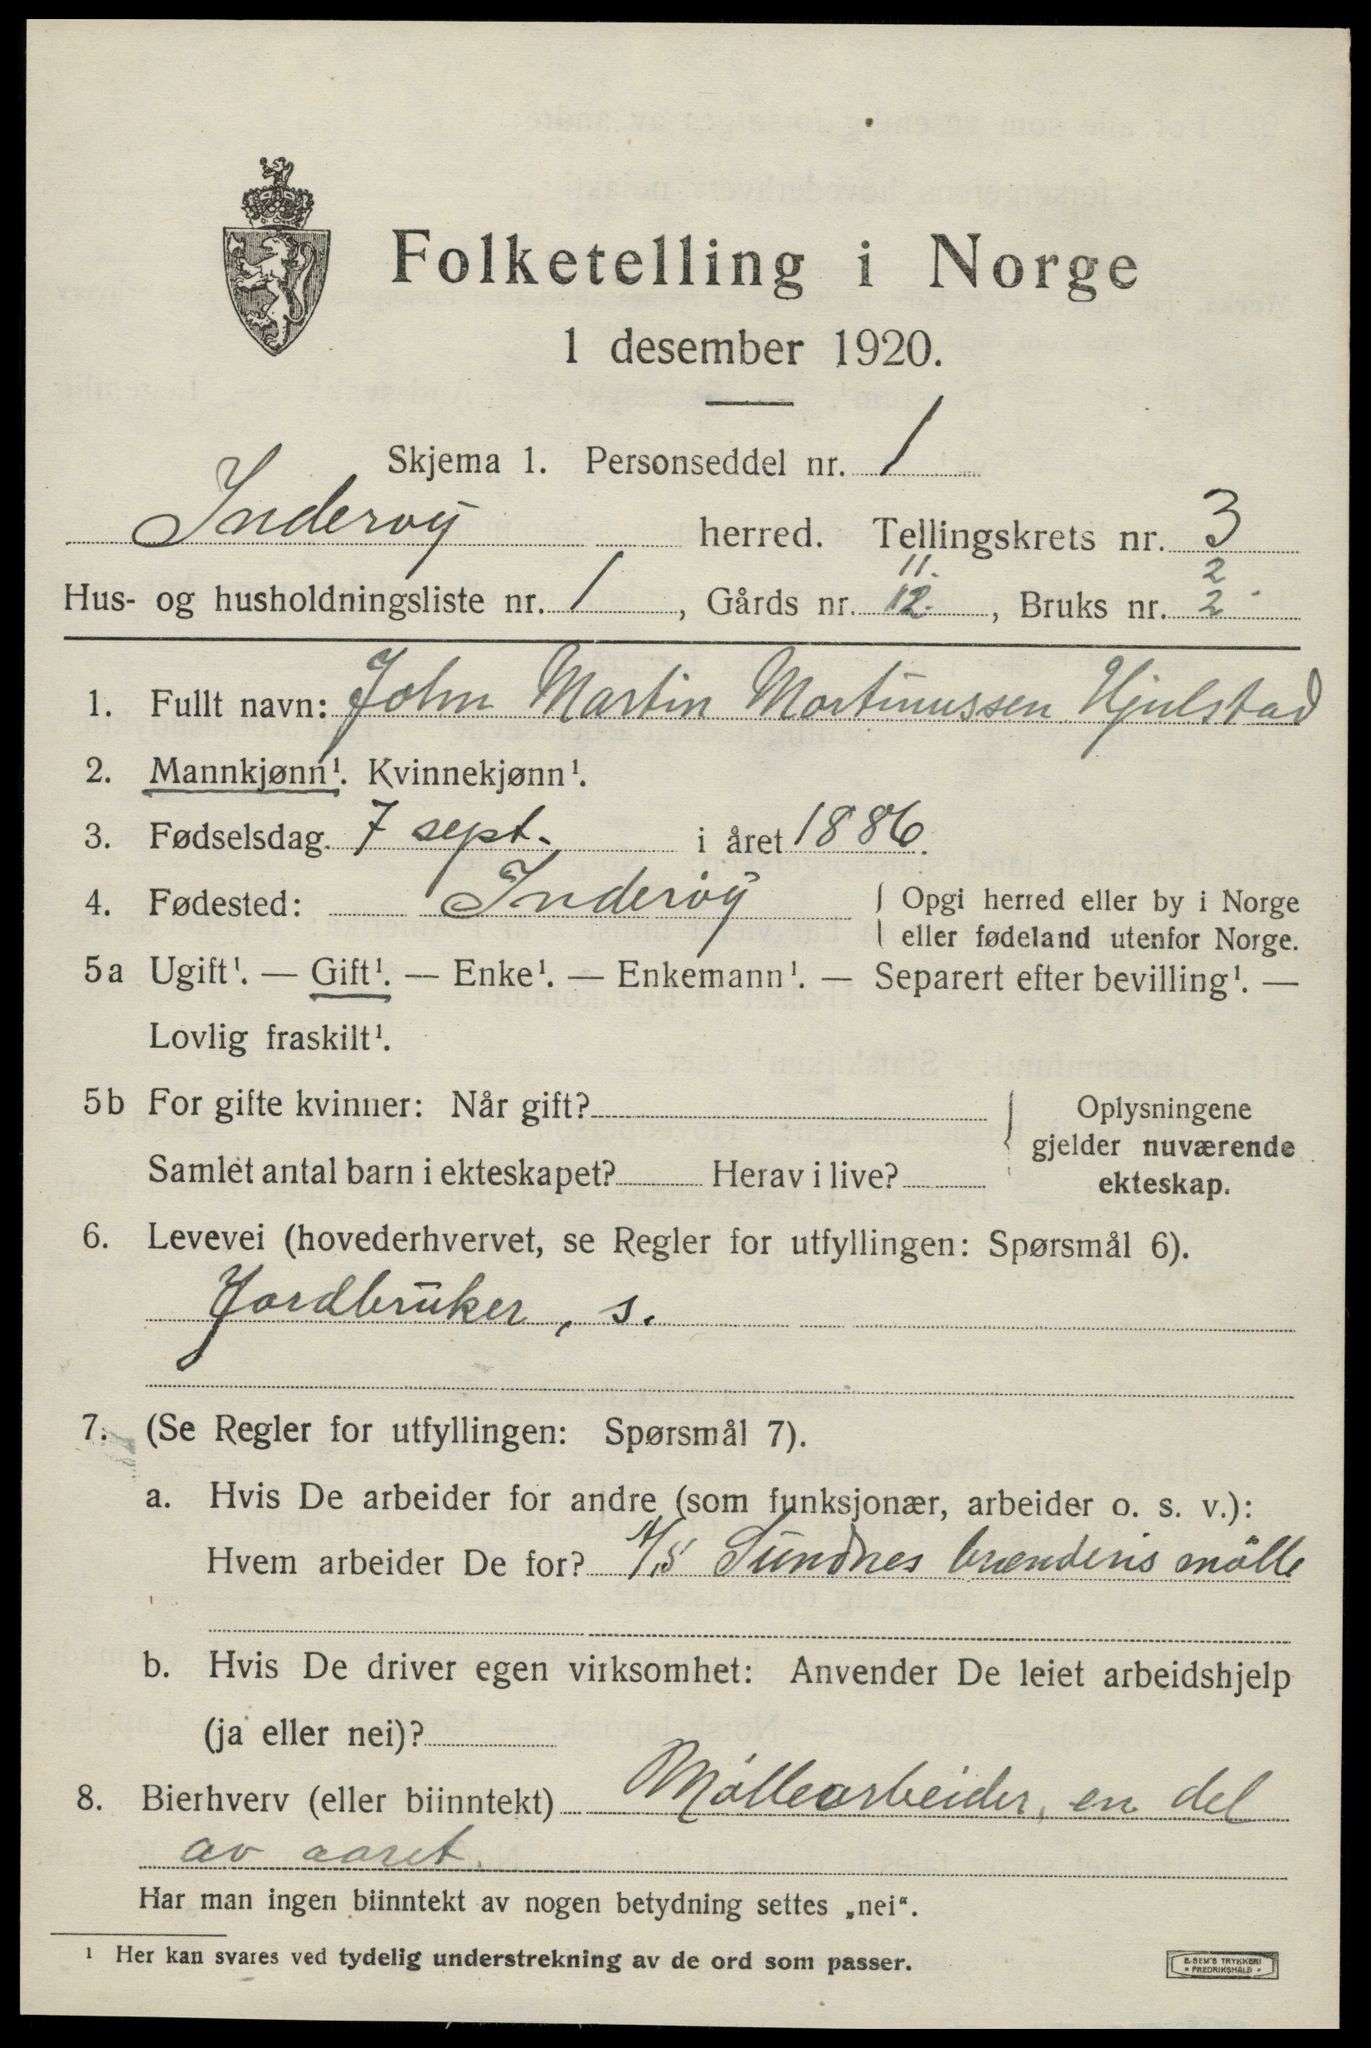 Folketelling i Norge
1 desember 1920.
Skjema 1. Personseddel nr. 1
Inderøy herred. Tellingskrets nr. 3
11. 2
Hus- og husholdningsliste nr. 1, Gårds nr. 12., Bruks nr. 2
1. Fullt navn: John Martin Martinussen Hjulstad
2. Mannkjønn¹. Kvinnekjønn¹.
3. Fødselsdag 7 sept. i året 1886.
4. Fødested: Inderøy { Opgi herred eller by i Norge
eller fødeland utenfor Norge.
5a Ugift¹. — Gift¹. — Enke¹. — Enkemann¹. — Separert efter bevilling¹. —
Lovlig fraskilt¹.
5b For gifte kvinner: Når gift? { Oplysningene
gjelder nuværende
Samlet antal barn i ekteskapet? Herav i live? ekteskap.
6. Levevei (hovederhvervet, se Regler for utfyllingen: Spørsmål 6).
Jordbruker, s.
7. (Se Regler for utfyllingen: Spørsmål 7).
a. Hvis De arbeider for andre (som funksjonær, arbeider o. s. v.):
Hvem arbeider De for? A/S Sundnes brænderis mølle
b. Hvis De driver egen virksomhet: Anvender De leiet arbeidshjelp
(ja eller nei)?
8. Bierhverv (eller biinntekt) Møllearbeider, en del
av aaret.
Har man ingen biinntekt av nogen betydning settes „nei“.
¹ Her kan svares ved tydelig understrekning av de ord som passer.
E. SEM'S TRYKKERI
• FREDRIKSHALD •